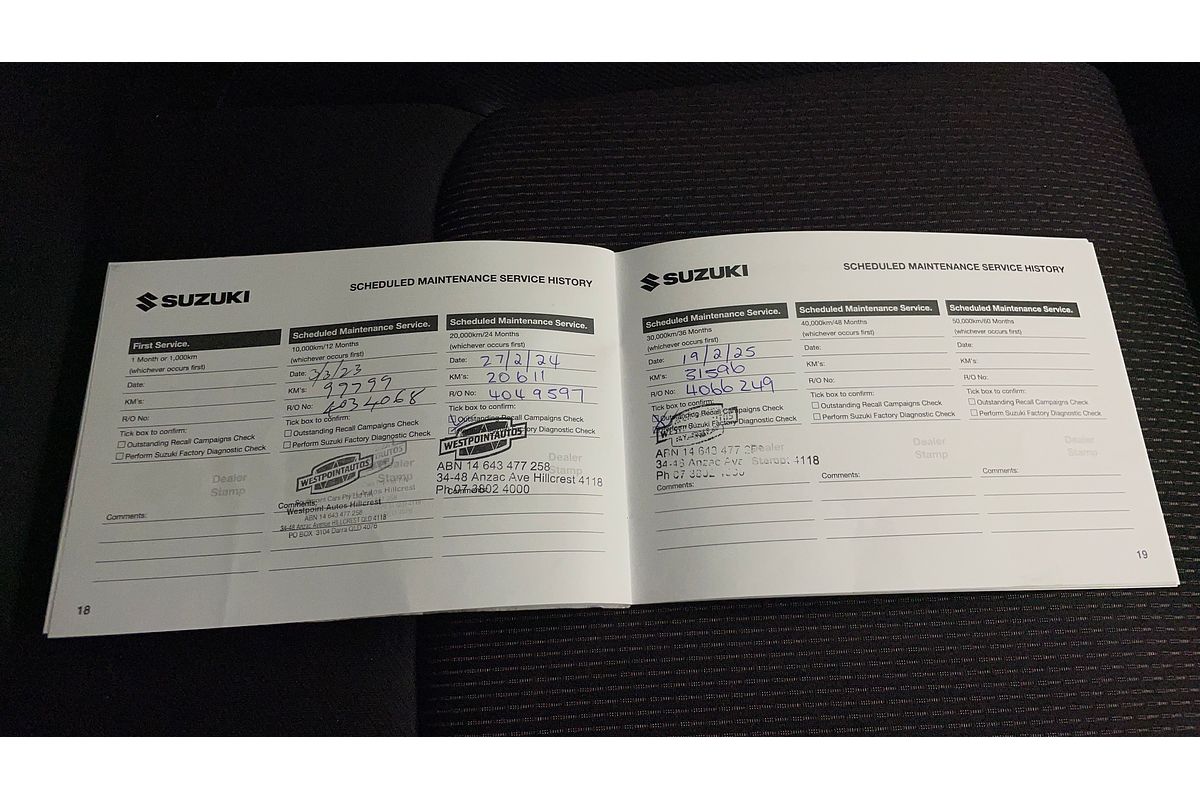 SUZUKI
SCHEDULED MAINTENANCE SERVICE HISTORY
First Service.
1 Month or 1,000km
(whichever occurs first)
Date:
KM's:
R/O No:
Tick box to confirm:
Outstanding Recall Campaigns Check
Perform Suzuki Factory Diagnostic Check
Dealer
Stamp
Comments:
Scheduled Maintenance Service.
10,000km/12 Months
(whichever occurs first)
Date: 3/3/23
KM's: 99799
R/O No: 4034068
Tick box to confirm:
Outstanding Recall Campaigns Check
Perform Suzuki Factory Diagnostic Check
WESTPOINTAUTOS
Dealer
Stamp
Comments:
Westpoint Autos Hillcrest
ABN 14 643 477 258
34-48 Anzac Avenue HILLCREST QLD 4118
PO BOX 3104 Darra QLD 4076
Scheduled Maintenance Service.
20,000km/24 Months
(whichever occurs first)
Date: 27/2/24
KM's: 20611
R/O No: 4049597
Tick box to confirm:
Outstanding Recall Campaigns Check
Perform Suzuki Factory Diagnostic Check
WESTPOINTAUTOS
Dealer
Stamp
ABN 14 643 477 258
34-48 Anzac Ave Hillcrest 4118
Ph 07 3802 4000
Comments:
18
SUZUKI
SCHEDULED MAINTENANCE SERVICE HISTORY
Scheduled Maintenance Service.
30,000km/36 Months
(whichever occurs first)
Date: 19/2/25
KM's: 31596
R/O No: 4066249
Tick box to confirm:
Outstanding Recall Campaigns Check
Perform Suzuki Factory Diagnostic Check
Dealer
Stamp
ABN 14 643 477 258
34-48 Anzac Ave 4118
Ph 07 3802
Comments:
Scheduled Maintenance Service.
40,000km/48 Months
(whichever occurs first)
Date:
KM's:
R/O No:
Tick box to confirm:
Outstanding Recall Campaigns Check
Perform Suzuki Factory Diagnostic Check
Dealer
Stamp
Comments:
Scheduled Maintenance Service.
50,000km/60 Months
(whichever occurs first)
Date:
KM's:
R/O No:
Tick box to confirm:
Outstanding Recall Campaigns Check
Perform Suzuki Factory Diagnostic Check
Dealer
Stamp
Comments:
19